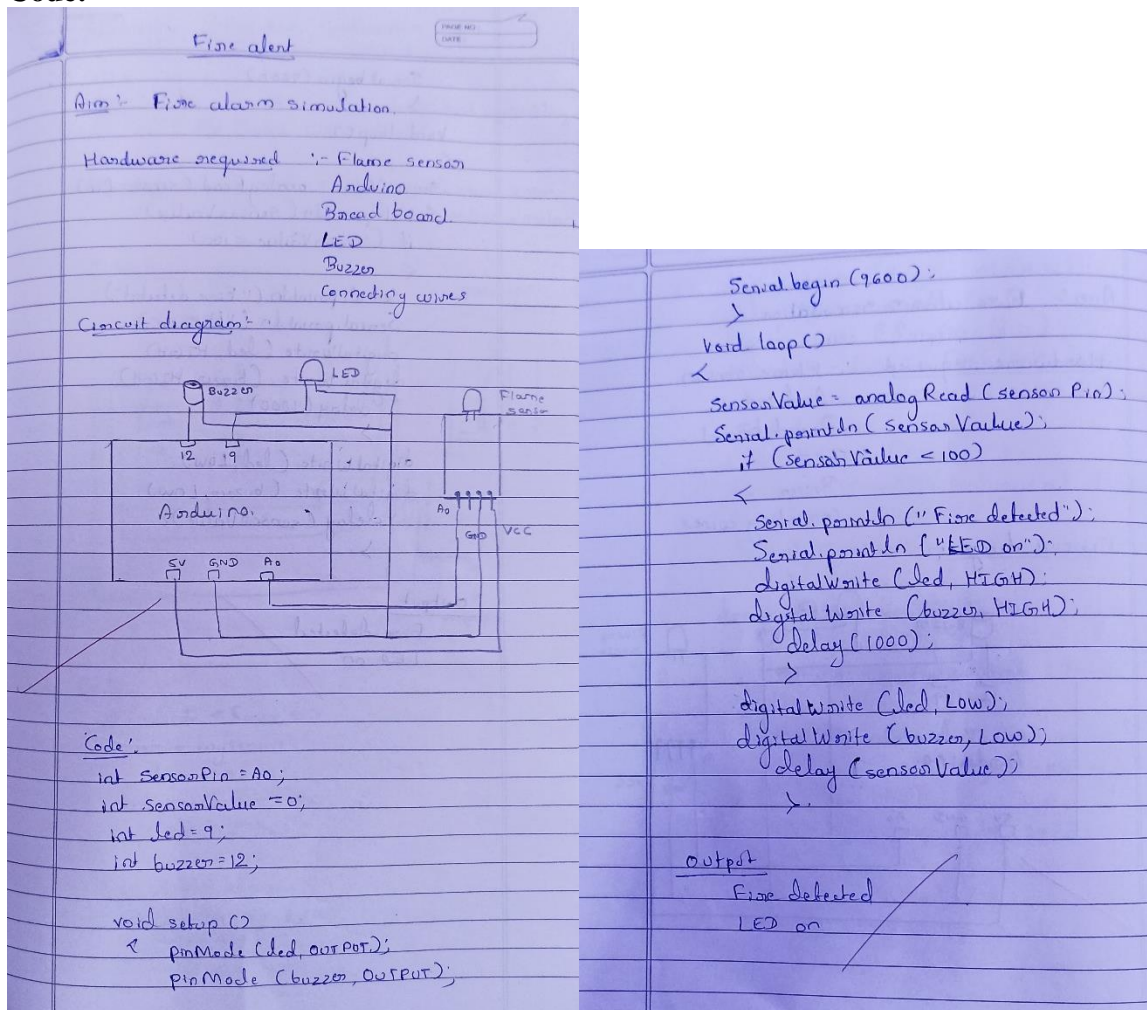 Code:
PAGE NO
DATE
Fire alert
Aim :- Fire alarm simulation.
Hardware required :- Flame sensor
Arduino
Bread board
LED
Buzzer
Connecting wires
Circuit diagram:-
LED
Buzzer
Flame
sensor
12 19
Arduino.
A0 GND VCC
5V GND A0
Code:
int SensorPin = A0;
int sensorValue = 0;
int led = 9;
int buzzer = 12;
void setup ()
{ pinMode (led, OUTPUT);
pinMode (buzzer, OUTPUT);
Serial.begin (9600);
}
void loop ()
{
SensorValue = analogRead (sensor Pin);
Serial.println (Sensor Vaulue);
if (sensor Value < 100)
{
Serial.println ("Fire detected");
Serial.println ("LED on");
digitalWrite (led, HIGH);
digital Write (buzzer, HIGH);
delay (1000);
}
digitalwrite (led, LOW);
digitalWrite (buzzer, LOW);
delay (sensorValue);
}.
Output
Fire detected
LED on